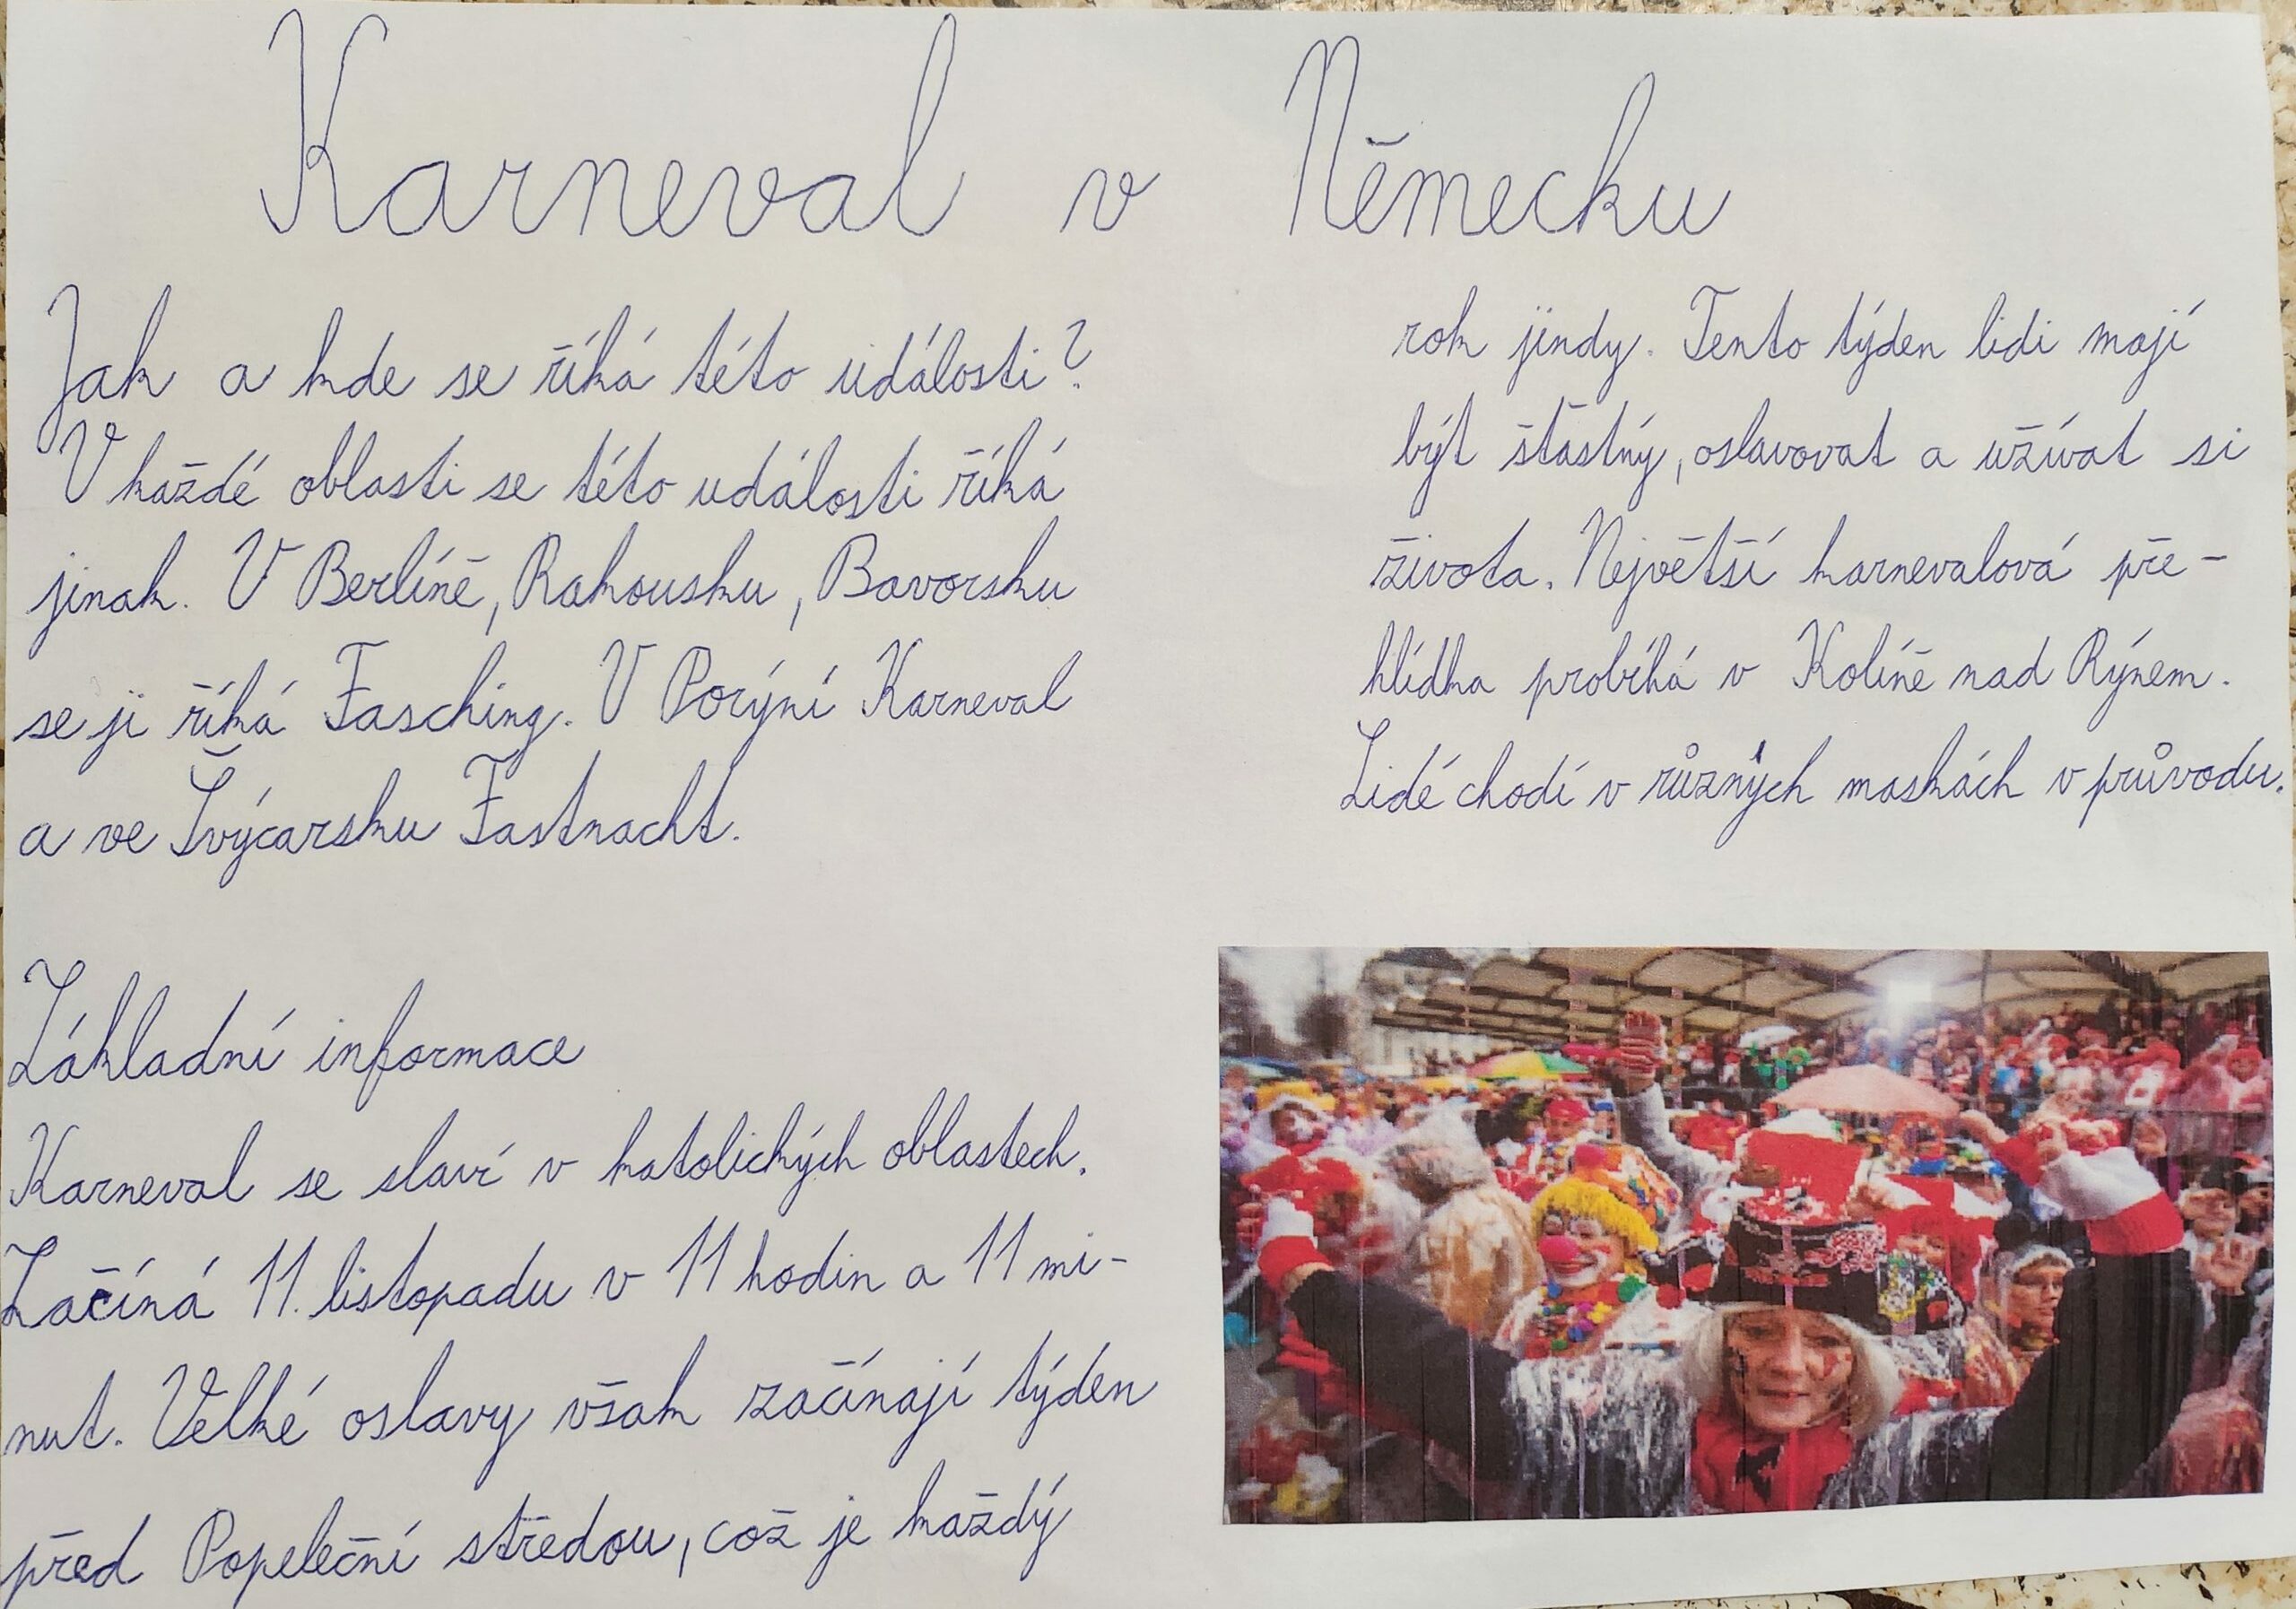 Karneval v Německu
Jak a kde se říká této události?
V každé oblasti se této události říká
jinak. V Berlíně, Rakousku, Bavorsku
se ji říká Fasching. V Porýní Karneval
a ve Švýcarsku Fastnacht.
Základní informace
Karneval se slaví v katolických oblastech.
Začíná 11. listopadu v 11 hodin a 11 mi-
nut. Velké oslavy však začínají týden
před Popeleční středou, což je každý
rok jindy. Tento týden lidi mají
být šťastný, oslavovat a užívat si
života. Největší karnevalová pře-
hlídka probíhá v Kolíně nad Rýnem.
Lidé chodí v různých maskách v průvodu.